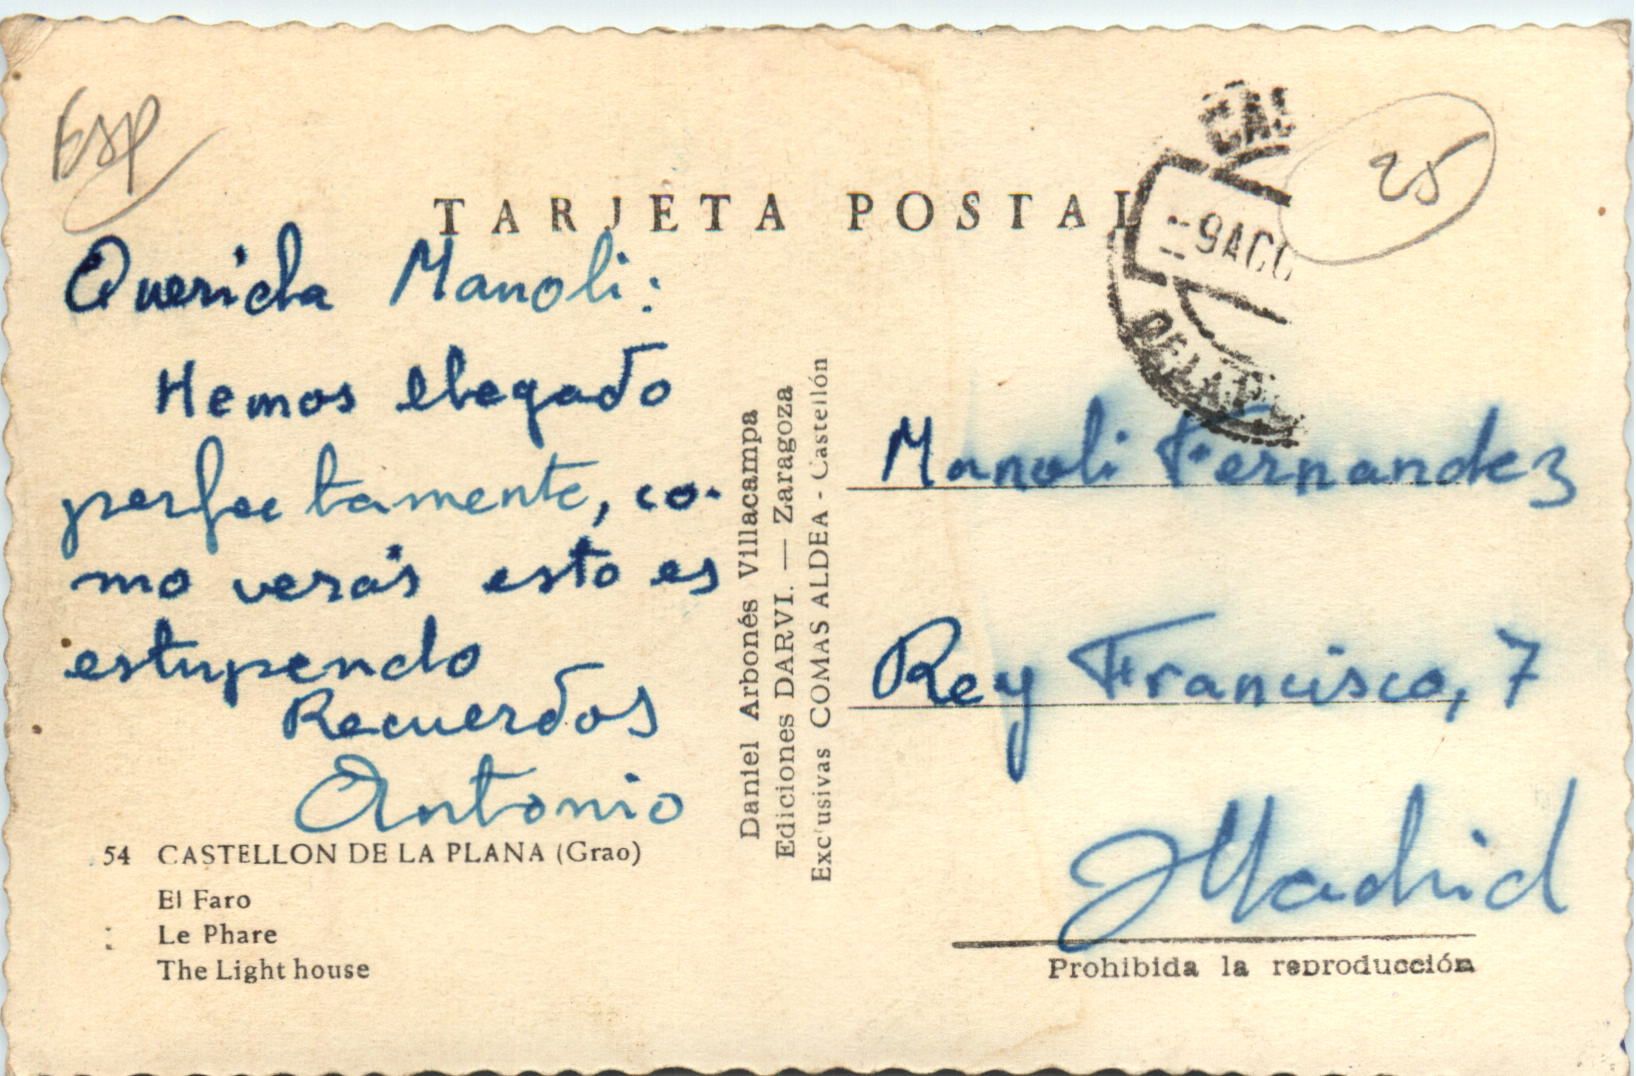 Esp
25
TARJETA POSTAL
-9AGO
DE LA P
Querida Manoli:
Hemos llegado
perfectamente, co-
mo verás esto es
estupendo
Recuerdos
Antonio
54 CASTELLON DE LA PLANA (Grao)
El Faro
Le Phare
The Light house
Daniel Arbonés Villacampa
Ediciones DARVI. — Zaragoza
Exclusivas COMAS ALDEA - Castellón
Manoli Fernandez
Rey Francisco, 7
Madrid
Prohibida la reproducción